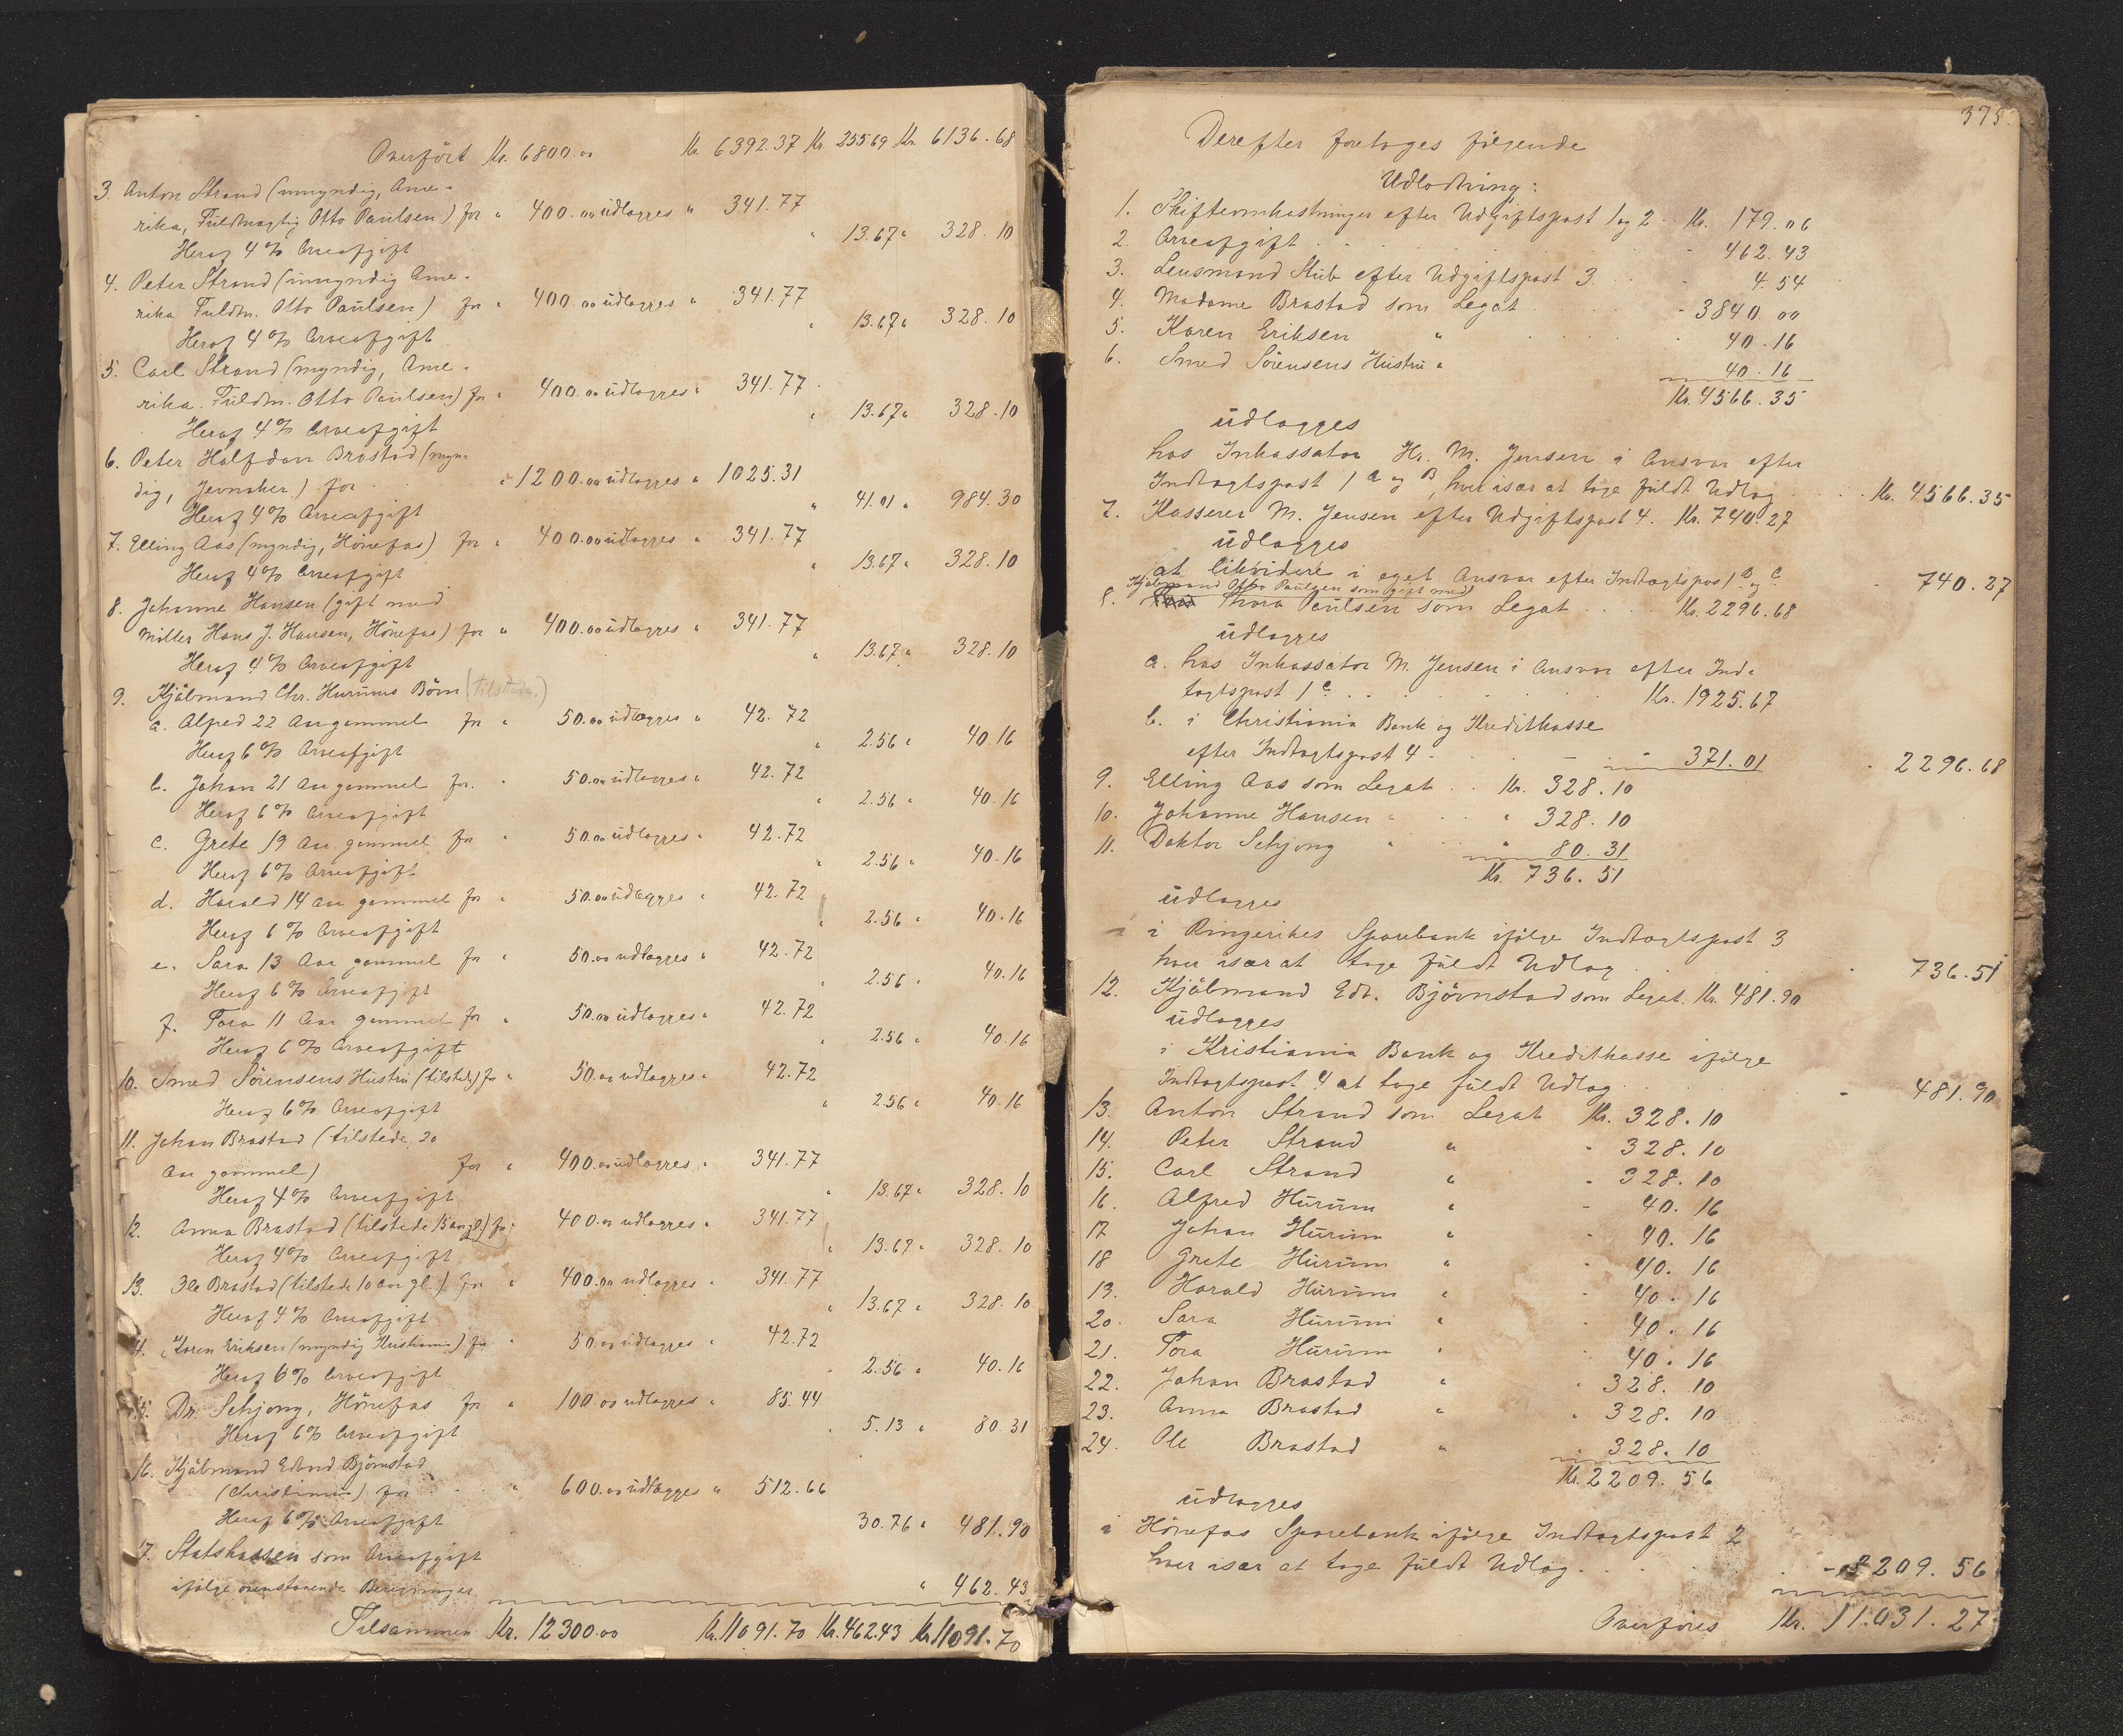 Overført Kr. 6800.00 Kr. 6392.37 Kr. 255.69 Kr. 6136.68
3. Anton Strand (umyndig, Ame-
rika, Fuldmægtig Otto Paulsen) for " 400.00 udlægges " 341.77
Heraf 4% Arveafgift " 13.67 " 328.10
4. Peter Strand (umyndig Ame-
rika Fuldm. Otto Paulsen) for " 400.00 udlægges " 341.77
Heraf 4% Arveafgift " 13.67 " 328.10
5. Carl Strand (myndig, Ame-
rika. Fuldm. Otto Paulsen) for " 400.00 udlægges " 341.77
Heraf 4% Arveafgift " 13.67 " 328.10
6. Peter Halfdan Brastad (myn-
dig, Jevnaker) for " 1200.00 udlægges " 1025.31
Heraf 4% Arveafgift " 41.01 " 984.30
7. Elling Aas (myndig, Hönefos) for " 400.00 udlægges " 341.77
Heraf 4% Arveafgift " 13.67 " 328.10
8. Johanne Hansen (gift med
Möller Hans J. Hansen, Hönefos) for " 400.00 udlægges " 341.77
Heraf 4% Arveafgift " 13.67 " 328.10
9. Kjöbmand Chr. Hurums Börn (tilstede.)
a. Alfred 22 Aar gammel for " 50.00 udlægges " 42.72
Heraf 6% Arveafgift " 2.56 " 40.16
b. Johan 21 Aar gammel for " 50.00 udlægges " 42.72
Heraf 6% Arveafgift " 2.56 " 40.16
c. Grete 19 Aar gammel for " 50.00 udlægges " 42.72
Heraf 6% Arveafgift " 2.56 " 40.16
d. Harald 14 Aar gammel for " 50.00 udlægges " 42.72
Heraf 6% Arveafgift " 2.56 " 40.16
e. Sara 13 Aar gammel for " 50.00 udlægges " 42.72
Heraf 6% Arveafgift " 2.56 " 40.16
f. Tora 11 Aar gammel for " 50.00 udlægges " 42.72
Heraf 6% Arveafgift " 2.56 " 40.16
10. Smed Sörensens Hustru (tilstede) for " 50.00 udlægges " 42.72
Heraf 6% Arveafgift " 2.56 " 40.16
11. Johan Brastad (tilstede, 20
Aar gammel) for " 400.00 udlægges " 341.77
Heraf 4% Arveafgift " 13.67 " 328.10
12. Anna Brastad (tilstede 15 aar gl.) for " 400.00 udlægges " 341.77
Heraf 4% Arveafgift " 13.67 " 328.10
13. Ole Brastad (tilstede 10 Aar gl.) for " 400.00 udlægges " 341.77
Heraf 4% Arveafgift " 13.67 " 328.10
4. Karen Eriksen (myndig Kristiania) for " 50.00 udlægges " 42.72
Heraf 6% Arveafgift " 2.56 " 40.16
15. Dr. Schjong, Hönefos for " 100.00 udlægges " 85.44
Heraf 6% Arveafgift " 5.13 " 80.31
16. Kjöbmand Edvard Björnstad
(Christiania) for " 600.00 udlægges " 512.66
Heraf 6% Arveafgift 30.76 " 481.90
17. Statskassen som Arveafgift
ifölge ovenstaaende Beregninger " 462.43
Tilsammen Kr. 12300.00 Kr. 11091.70 Kr. 462.43 Kr. 11091.70
375.
Derefter foretoges følgende
Udlodning:
1. Skifteomkostninger efter Udgiftspost 1 og 2 Kr. 179.06
2. Arveafgift - 462.43
3. Lensmand Stub efter Udgiftspost 3. 4.54
4. Madame Brastad som Legat - 3840.00
5. Karen Eriksen " - 40.16
6. Smed Sörensens Hustru " 40.16
Kr. 4566.35
udlægges
hos Inkassator Hr. M. Jensen i Ansvar efter
Indtægtspost 1 A og B, hver især at tage fuldt Udlæg Kr. 4566.35
7. Kasserer M. Jensen efter Udgiftspost 4. Kr. 740.27
udlægges
at likvidere i eget Ansvar efter Indtægtspost 1 B og C - 740.27
Kjöbmand Otto Paulsen som gift med
8. Thora Paulsen som Legat Kr. 2296.68
udlægges
a. hos Inkassator M. Jensen i Ansvar efter Ind-
tægtspost 1 C Kr. 1925.67
b. i Christiania Bank og Kreditkasse
efter Indtægtspost 4 - 371.01 - 2296.68
9. Elling Aas som Legat Kr. 328.10
10. Johanne Hansen " " 328.10
11. Doktor Schjong " " 80.31
Kr. 736.51
udlægges
i Ringerikes Sparebank ifölge Indtægtspost 3
hver især at tage fuldt Udlæg 736.51
12. Kjöbmand Edv. Björnstad som Legat. Kr. 481.90
udlægges
i Kristiania Bank og Kreditkasse ifölge
Indtægtspost 4 at tage fuldt Udlæg - 481.90
13. Anton Strand som Legat Kr. 328.10
14. Peter Strand " - 328.10
15. Carl Strand " - 328.10
16. Alfred Hurum " - 40.16
17 Johan Hurum " - 40.16
18 Grete Hurum " - 40.16
19. Harald Hurum " - 40.16
20. Sara Hurum " 40.16
21. Tora Hurum " 40.16
22. Johan Brastad " - 328.10
23. Anna Brastad " - 328.10
24. Ole Brastad " - 328.10
Kr. 2209.56
udlægges
i Hönefos Sparebank ifölge Indtægtspost 2
hver især at tage fuldt Udlæg - 2209.56
Overføres Kr. 11.031.27